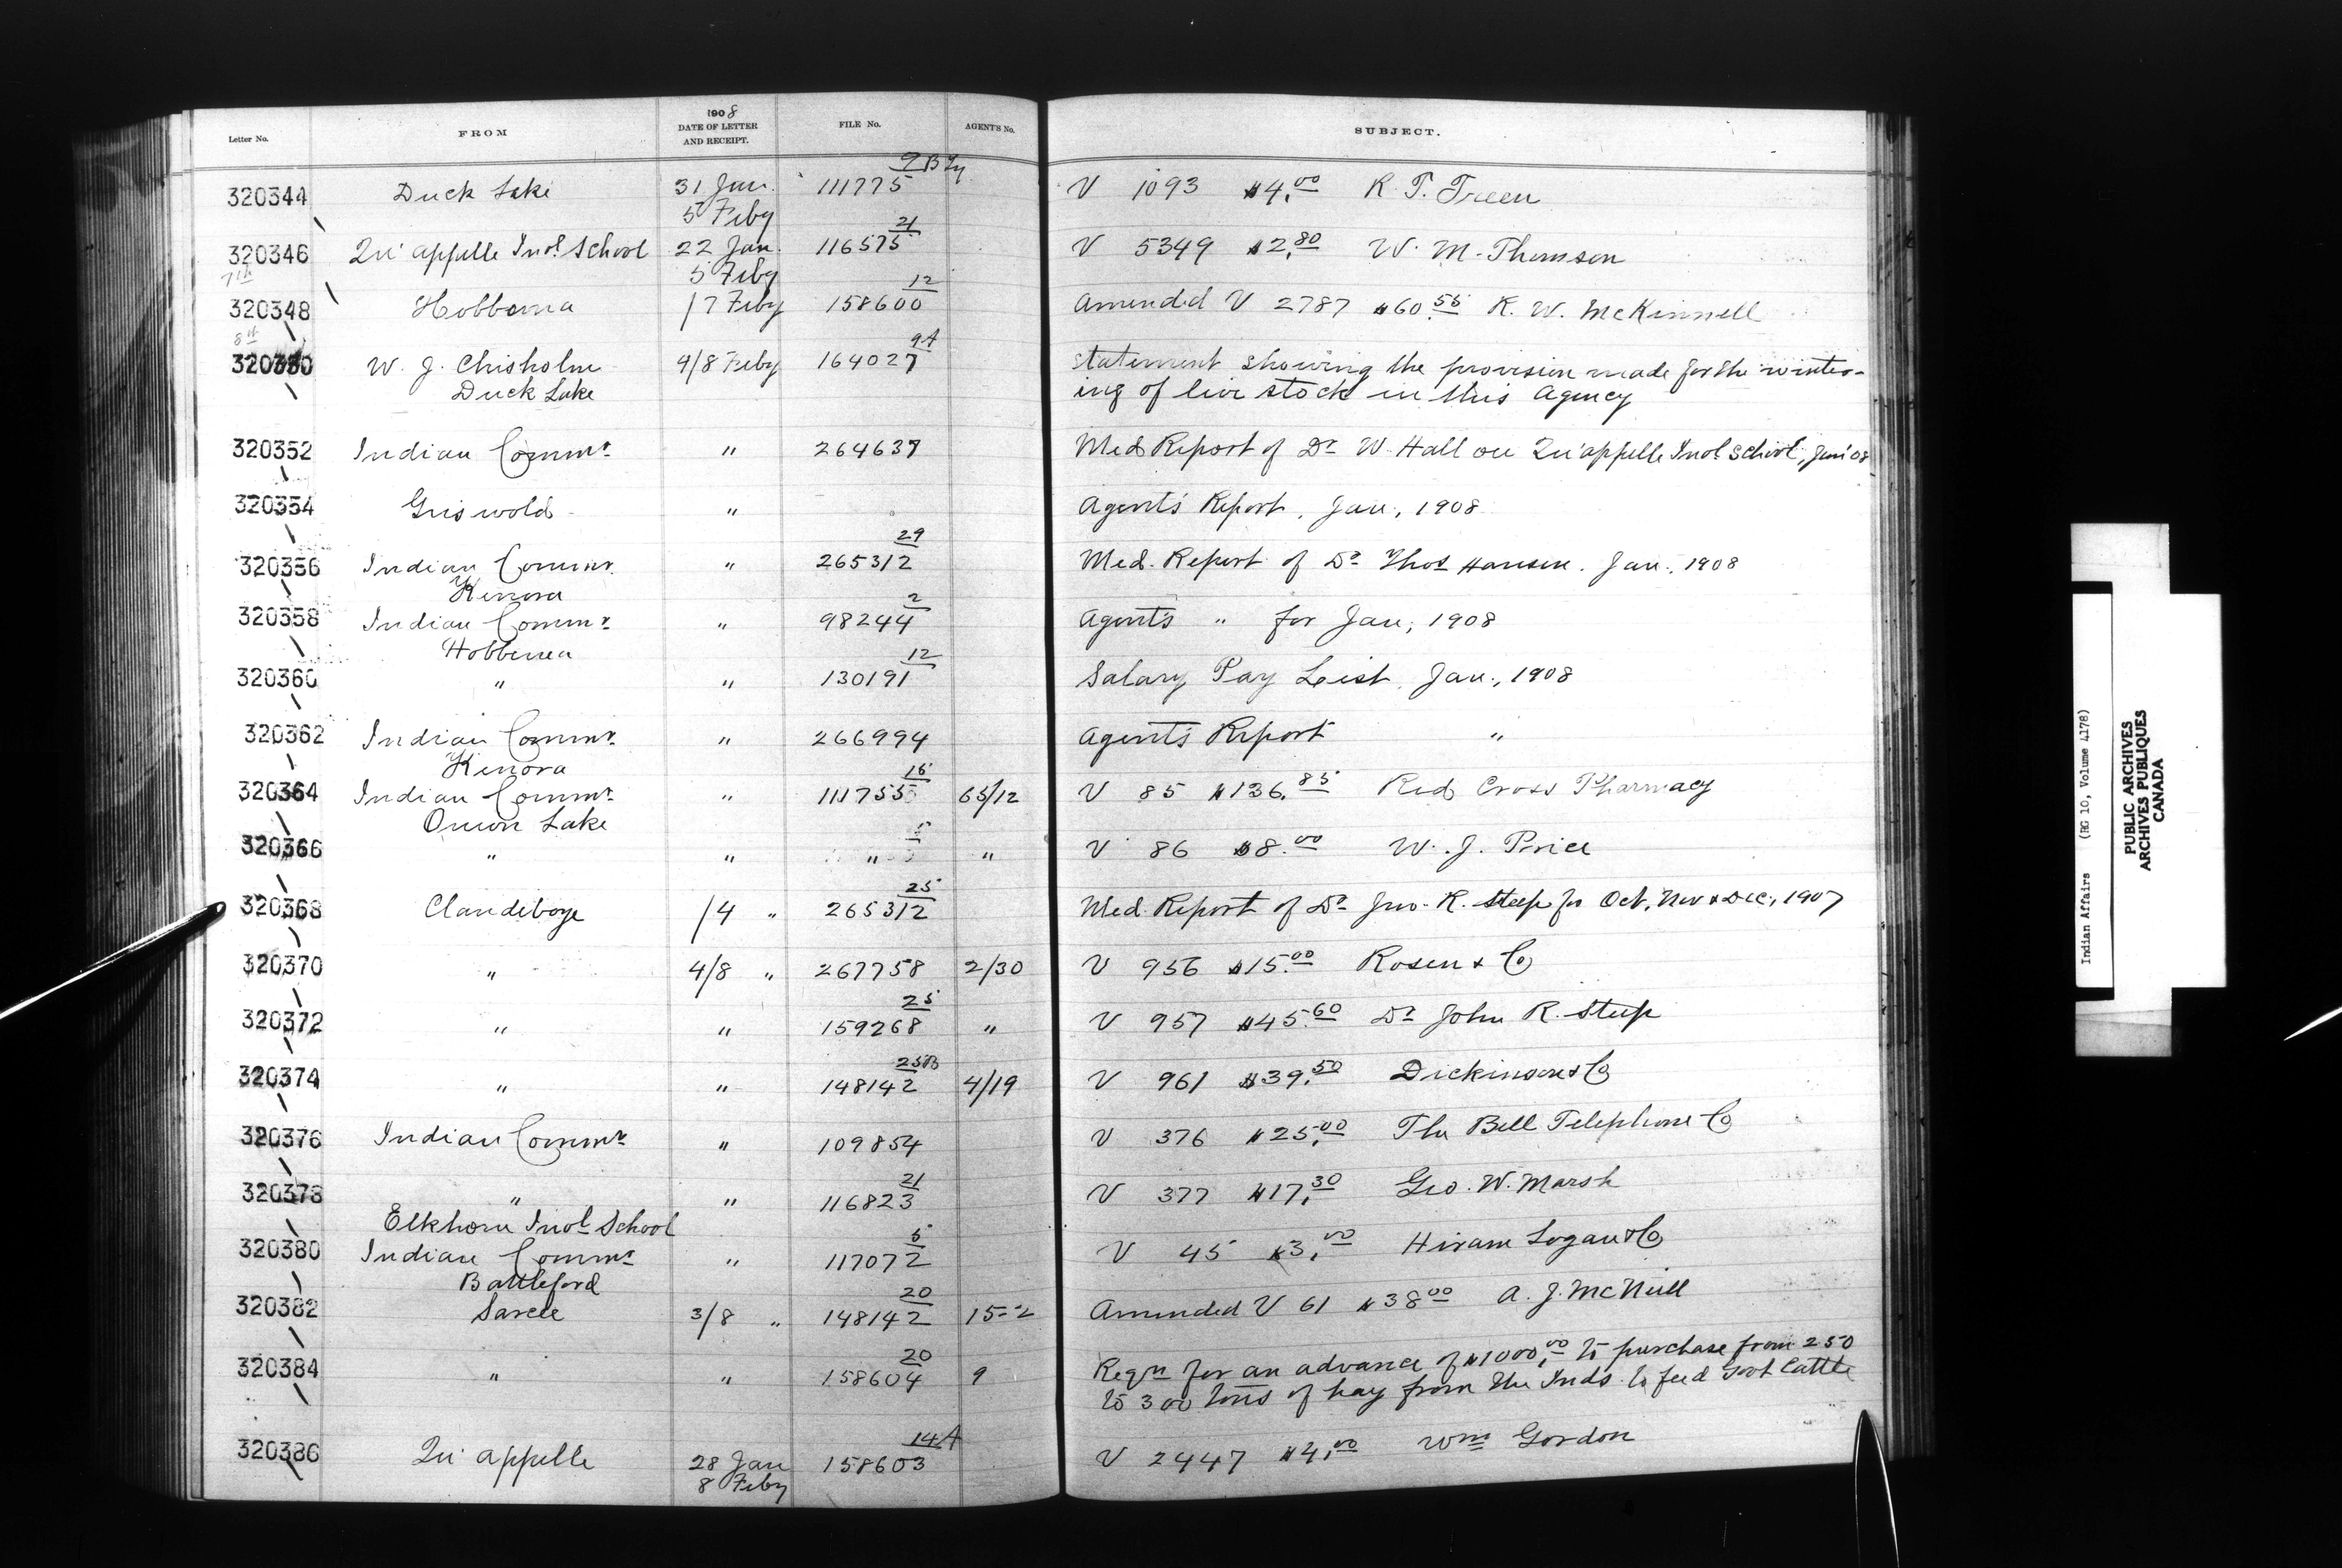 Letter No. FROM 1908 DATE OF LETTER AND RECEIPT. FILE No. AGENT'S No. SUBJECT.
9B
320344 Duck Lake 31 Jan. 111775 V 1093 $4.00 R. T. Treen
5 Feby 21
320346 Qu'appelle Indl. School 22 Jan. 116575 V 5349 $2.80 W. M. Thomson
7th 5 Feby 12
320348 Hobbema /7 Feby 158600 Amended V 2787 $60.55 R. W. McKinnell
8th 9A
320350 W. J. Chisholm 4/8 Feby 164027 Statement showing the provision made for the winter-
Duck Lake ing of live stock in this Agency
320352 Indian Commr. " 264637 Med Report of Dr W. Hall on Qu'appelle Indl School, Jan '08
320354 Griswold " Agent's Report, Jan., 1908
29
320356 Indian Commr. " 265312 Med. Report of Dr Thos Hansen. Jan., 1908
Kenora 2
320358 Indian Commr. " 98244 Agent's " for Jan, 1908
Hobbema 12
320360 " " 130191 Salary Pay List, Jan., 1908
320362 Indian Commr. " 266994 Agent's Report "
Kenora 15
320364 Indian Commr. " 111755 65/12 V 85 $136.85 Red Cross Pharmacy
Onion Lake
320366 " " " " V 86 $8.00 W. J. Price
25
320368 Clandeboye /4 " 265312 Med. Report of Dr Jno. R. Steep for Oct, Nov & Dec, 1907
320370 " 4/8 " 267758 2/30 V 956 $15.00 Rosen & Co
25
320372 " " 159268 " V 957 $45.60 Dr John R. Steep
25B
320374 " " 148142 4/19 V 961 $39.50 Dickinson & Co
320376 Indian Commr " 109854 V 376 $25.00 The Bell Telephone Co
21
320378 " " 116823 V 377 $17.30 Geo. W. Marsh
Elkhorn Indl School 5
320380 Indian Commr " 117072 V 45 $3.00 Hiram Logan & Co
Battleford 20
320382 Sarcee 3/8 " 148142 15-2 Amended V 61 $38.00 A. J. McNeill
20
320384 " " 158604 9 Reqn for an advance of $1000.00 to purchase from 250
to 300 tons of hay from the Inds. to feed Govt Cattle
14A
320386 Qu'appelle 28 Jan 158603 V 2447 $4.00 Wm Gordon
8 Feby
Indian Affairs (RG 10, Volume 4178)
PUBLIC ARCHIVES
ARCHIVES PUBLIQUES
CANADA